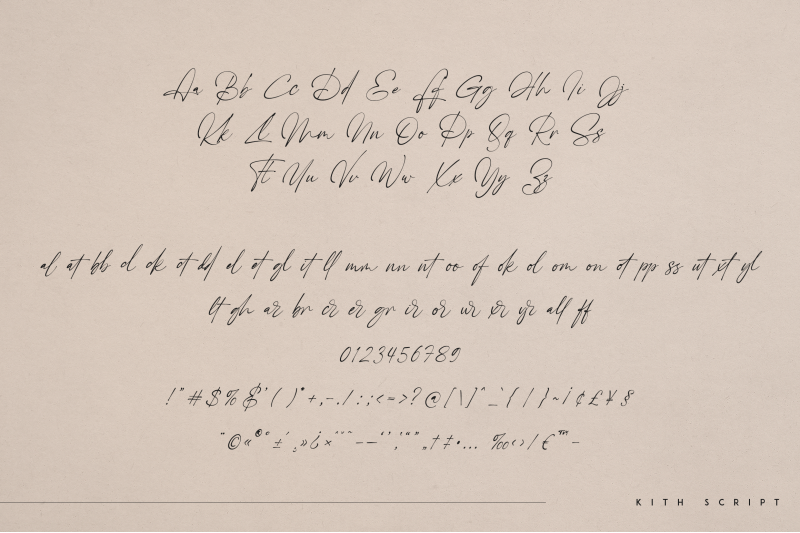 Aa Bb Cc Dd Ee Ff Gg Hh Ii Jj
Kk Ll Mm Nn Oo Pp Qq Rr Ss
Tt Uu Vv Ww Xx Yy Zz
al at bb cl ck ct dd el et gl it ll mm nn nt oo of ok ol om on ot pp ss ut xt yl
lt gh ar br cr er gr ir or ur xr yr all ff
0123456789
!"#$%&'()*+,-./:;<=>?@[\]^_`{|}~¡¢£¥§
¨©«®°±´¸»¿×ˆ˜–—‘’‚“”„†‡•…‰‹›/€™−
KITH SCRIPT